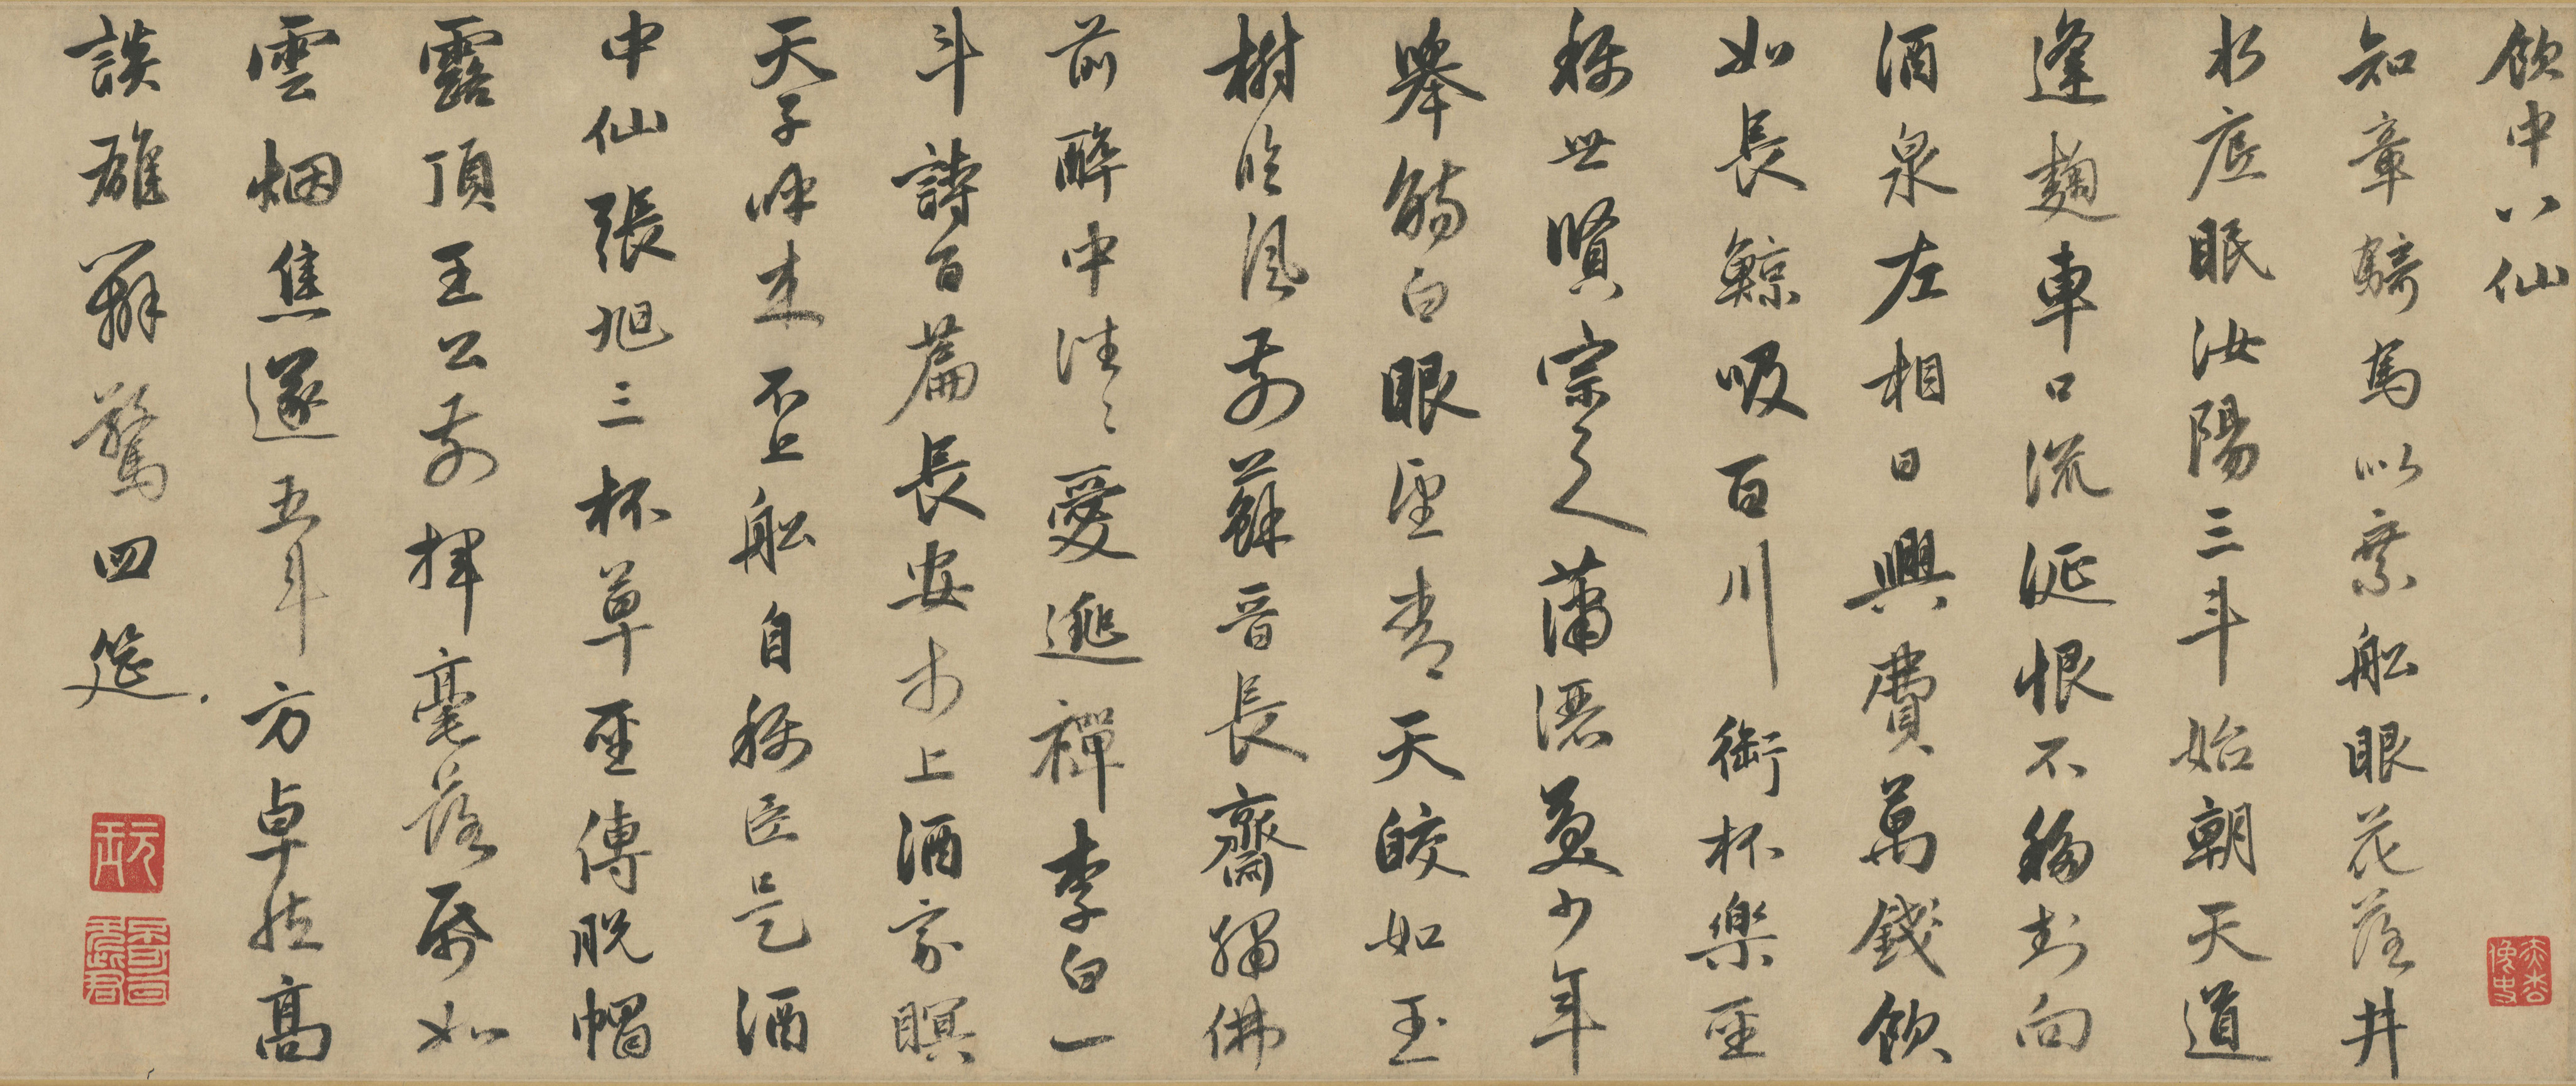 飲中八仙
知章騎馬似乘舩眼花落井
水底眠汝陽三斗始朝天道
逢麴車口流涎恨不移封向
酒泉左相日興費萬錢飲
如長鯨吸百川銜杯樂聖
稱世賢宗之蕭灑美少年
舉觴白眼望青天皎如玉
樹臨風前蘇晉長齋繡佛
前醉中往〻愛逃禪李白一
斗詩百篇長安市上酒家瞑
天子呼来不上舩自稱臣是酒
中仙張旭三杯草聖傳脫帽
露頂王公前揮毫落帋如
雲烟焦遂五斗方卓然高
談雄辯驚四筵